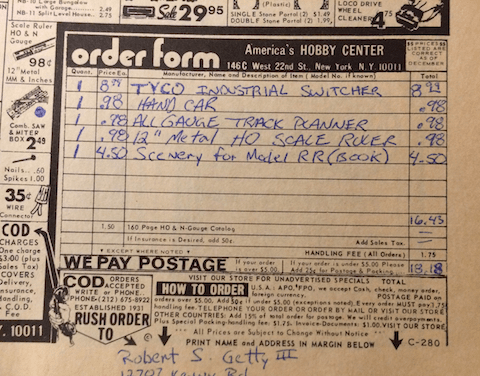 HB-10 Large Bungalow
with Garage 2.49
HB-11 Split-Level House
Sale $29.95
(Plastic)
SINGLE Stone Portal (2) $1.49
DOUBLE Stone Portal (2) 1.99
LOCO DRIVE
WHEEL
CLEANER
4.75
Scale Ruler
HO & N
Gauge
98¢
12" Metal
MM & Inches
Comb. SAW
& MITER
BOX 2.49
Nails.. .60
Spikes 1.00
35¢
WIRE
Connector
COD
CHARGES
One charge
$3.00 (plus
Sales Tax)
COVERS
Delivery,
Insurance,
Handling,
& C.O.D.
Fee
Y. 10011
order form
America's HOBBY CENTER
146C West 22nd St., New York N.Y. 10011
PRICES
LISTED
ARE
CORRECT
AS OF
DECEMBER
Quant. Price Ea. Manufacturer, Name and Description of Item (Model No. if known) Total
1 8.99 TYCO INDUSTRIAL SWITCHER 8.99
1 .98 HAND CAR .98
1 .98 ALL GAUGE TRACK PLANNER .98
1 .98 12" Metal HO SCALE RULER .98
1 4.50 Scenery for Model RR (BOOK) 4.50
16.43
1.50 160 Page HO & N-Gauge Catalog
If Insurance is Desired, add 50¢.
Add Sales Tax
EXCEPT WHERE NOTED
HANDLING FEE (All Orders) 1.75
WE PAY POSTAGE
If your order is over $5.00.
If your order is under $5.00 Please Add 25¢ for Postage & Packing
18.18
COD ORDERS ACCEPTED
WRITE or PHONE
PHONE-(212) 675-8922
ESTABLISHED 1931
RUSH ORDER TO
VISIT OUR STORE FOR UNADVERTISED SPECIALS TOTAL
HOW TO ORDER
U.S.A.: APO, FPO, we accept Cash, check, money order, foreign currency. POSTAGE PAID on
orders over $5.00. Add 50¢ if under $5.00 (exceptions noted). Every order MUST pay 1.75
handling fee. TELEPHONE YOUR ORDER OR ORDER BY MAIL OR VISIT OUR STORE
OTHER COUNTRIES: Add 15% of total order for postage. We will credit overpayments.
Plus Special Packing-handling fee $1.75. Invoice-Documents: $1.00. VISIT OUR STORE
All Prices are Subject to Change Without Notice
PRINT NAME and ADDRESS IN MARGIN BELOW
C-280
Robert S. Getty III